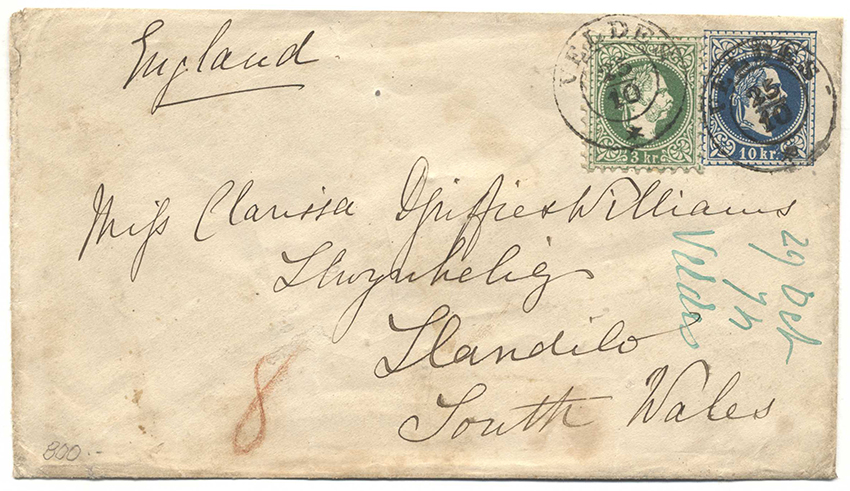 England
VELDES
25
10
3 kr.
VELDES
25
10
10 kr.
Miss Clarissa Williams
Llwynhelig
Llandilo
South Wales
29 Oct
Veldes
8
800